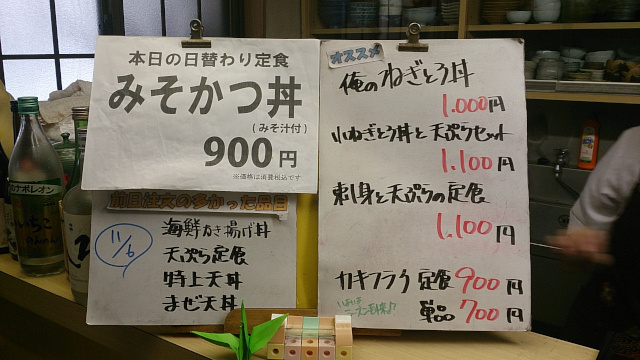 本日の日替わり定食
みそかつ丼
(みそ汁付)
900円
※価格は消費税込です
前日注文の多かった品目
11/6
海鮮かき揚げ丼
天ぷら定食
特上天丼
まぜ天丼
オススメ
俺のねぎとろ丼
1.000円
小ねぎとろ丼と天ぷらセット
1.100円
刺身と天ぷらの定食
1.100円
カキフライ定食 900円
単品 700円
ナポレオン
いいちこ